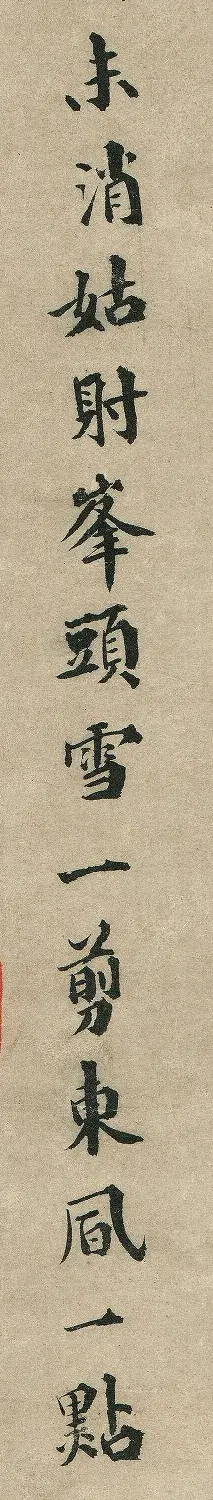 未消姑射峯頭雪一剪東風一點